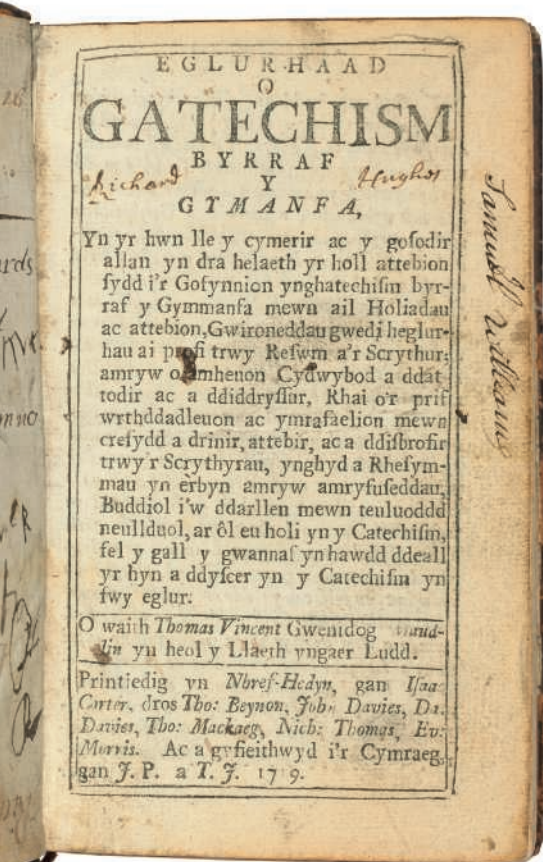 EGLURHAAD
O
GATECHISM
BYRRAF
Y
Richard Hughes
GYMANFA,
Yn yr hwn lle y cymerir ac y goſodir
allan yn dra helaeth yr holl attebion
ſydd i'r Goſynnion ynghatechiſm byr-
raf y Gymmanfa mewn ail Holiadau
ac attebion, Gwironeddau gwedi heglur-
hau ai profi trwy Reſwm a'r Scrythur;
amryw o amheuon Cydwybod a ddat-
todir ac a ddiddryſſir, Rhai o'r prif
wrthddadleuon ac ymrafaelion mewn
creſydd a drinir, attebir, ac a ddiſbrofir
trwy'r Scrythyrau, ynghyd a Rheſym-
mau yn erbyn amryw amryfuſeddau,
Buddiol i'w ddarllen mewn teuluoddd
neullduol, ar ôl eu holi yn y Catechiſm,
fel y gall y gwannaf yn hawdd ddeall
yr hyn a ddyſcer yn y Catechiſm yn
fwy eglur.
O waith Thomas Vincent Gweinidog
yn heol y Llaeth yngaer Ludd.
Printiedig yn Nhref-Hedyn, gan Iſaac
Carter, dros Tho: Beynon, John Davies, Da.
Davies, Tho: Mackaeg, Nich: Thomas, Ev:
Morris. Ac a gyfieithwyd i'r Cymraeg,
gan J. P. a T. J. 1719.
Samuel Williams